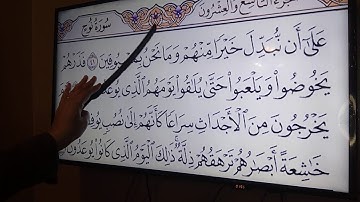 الجزء التاسع والعشرون سورة نوح
عَلَىٰ أَن نُّبَدِّلَ خَيْرًا مِّنْهُمْ وَمَا نَحْنُ بِمَسْبُوقِينَ ٤١ فَذَرْهُمْ
يَخُوضُوا وَيَلْعَبُوا حَتَّىٰ يُلَاقُوا يَوْمَهُمُ الَّذِي يُوعَدُونَ
يَخْرُجُونَ مِنَ الْأَجْدَاثِ سِرَاعًا كَأَنَّهُمْ إِلَىٰ نُصُبٍ يُوفِضُونَ
خَاشِعَةً أَبْصَارُهُمْ تَرْهَقُهُمْ ذِلَّةٌ ذَٰلِكَ الْيَوْمُ الَّذِي كَانُوا يُوعَدُونَ